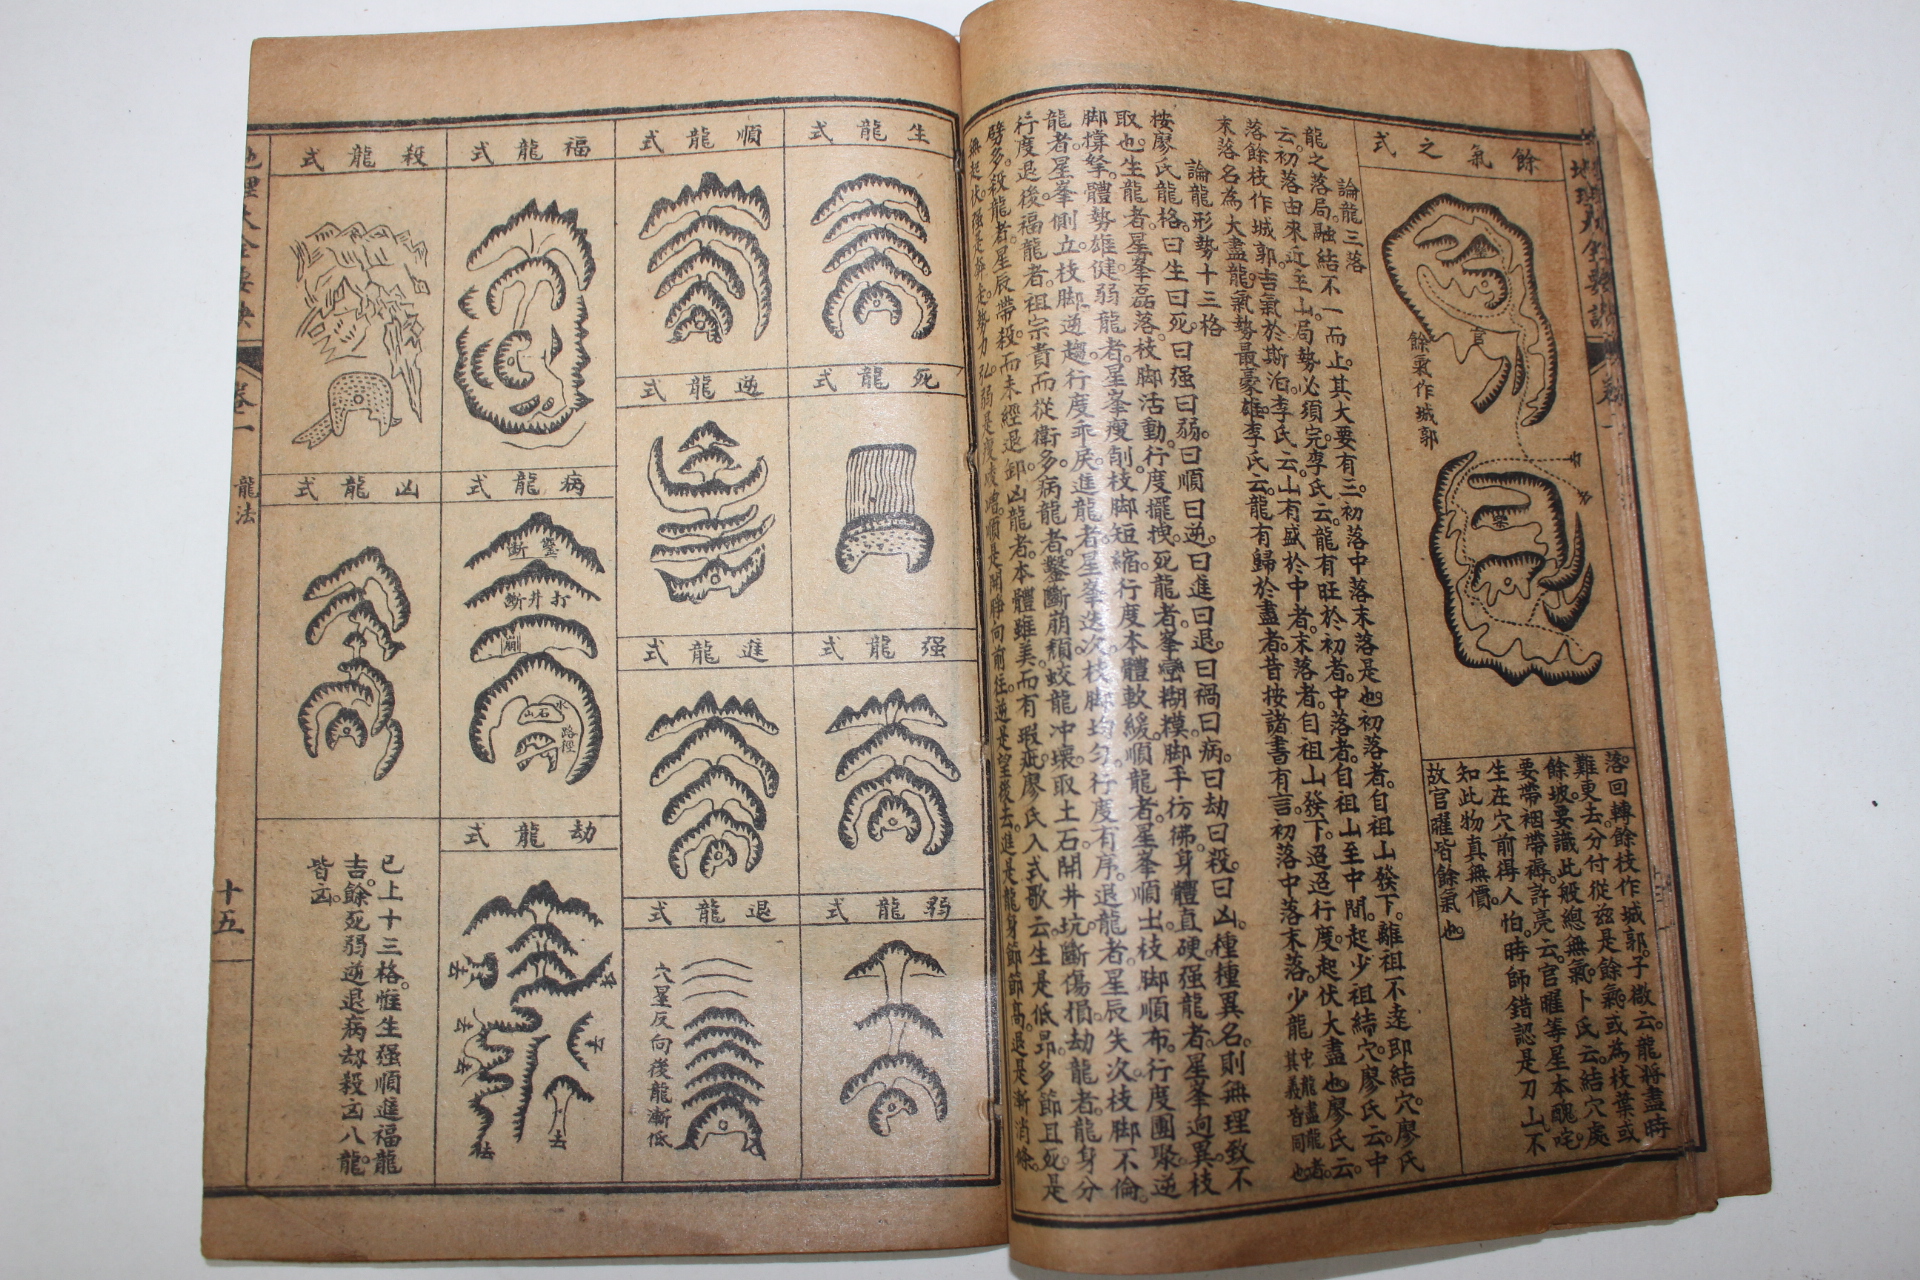 餘氣之式
餘氣作城郭
落。回轉餘枝作城郭。子微云。龍將盡時
難更去。分付從茲是餘氣。或為枝葉或
餘坡。要識此般總無氣。卜氏云。結穴處
要帶裀帶褥。許亮云。官曜等星本醜咤。
生在穴前得人怕。時師錯認是刀山。不
知此物真無價。
故官曜皆餘氣也
論龍三落
龍之落局。融結不一而止。其大要有三。初落中落末落是也。初落者。自祖山發下。離祖不遠即結穴。廖氏
云。初落由來近至山。局勢必須完。李氏云。龍有旺於初者。中落者。自祖山至中間。起少祖結穴。廖氏云。中
落餘枝作城郭。吉氣於斯泊。李氏云。山有盛於中者。末落者。自祖山發下。迢迢行度。起伏大盡也。廖氏云
末落名為大盡龍。氣勢最豪雄。李氏云。龍有歸於盡者。昔按諸書有言。初落中落末落。少龍中龍盡龍者。其義皆同也
論龍形勢十三格
按廖氏龍格。曰生曰死曰强曰弱。曰順曰逆。曰進曰退。曰禍曰病。曰劫曰殺。曰凶。種種異名。則無理致不
取也。生龍者。星峯磊落。枝脚活動。行度擺拽。死龍者。峯巒糊糢。脚手彷彿。身體直硬。强龍者。星峯迥異。枝
脚撐拏。體勢雄健。弱龍者。星峯瘦削。枝脚短縮。行度本體軟緩。順龍者。星峯順出。枝脚順布。行度團聚。逆
龍者。星峯側立。枝脚逆趨。行度乖戾。進龍者。星峯迭次。枝脚均勻。行度有序。退龍者。星辰失次。枝脚不倫。
行度退後。福龍者。祖宗貴而從衛多。病龍者。鑿斷崩頹。蛟龍冲壞。取土石。開井坑。斷傷損。劫龍者。龍身分
劈多。殺龍者。星辰帶殺。而未經退卸。凶龍者。本體雖美。而有瑕疵。廖氏入式歌云。生是低昂多節。且死是
無起伏。强是奔走。勢力弘。弱是瘦崚嶒。順是開睜向前往。逆是望後去。進是龍身節節高。退是漸消條。
生龍式
順龍式
福龍式
殺龍式
死龍式
逆龍式
病龍式
鑿斷
打井斷
崩
山石
水
路徑
凶龍式
强龍式
進龍式
劫龍式
弱龍式
退龍式
穴星反向後龍漸低
已上十三格。惟生强順進福龍
吉。餘死弱逆退病劫殺凶八龍
皆凶。
卷一
龍法
十五